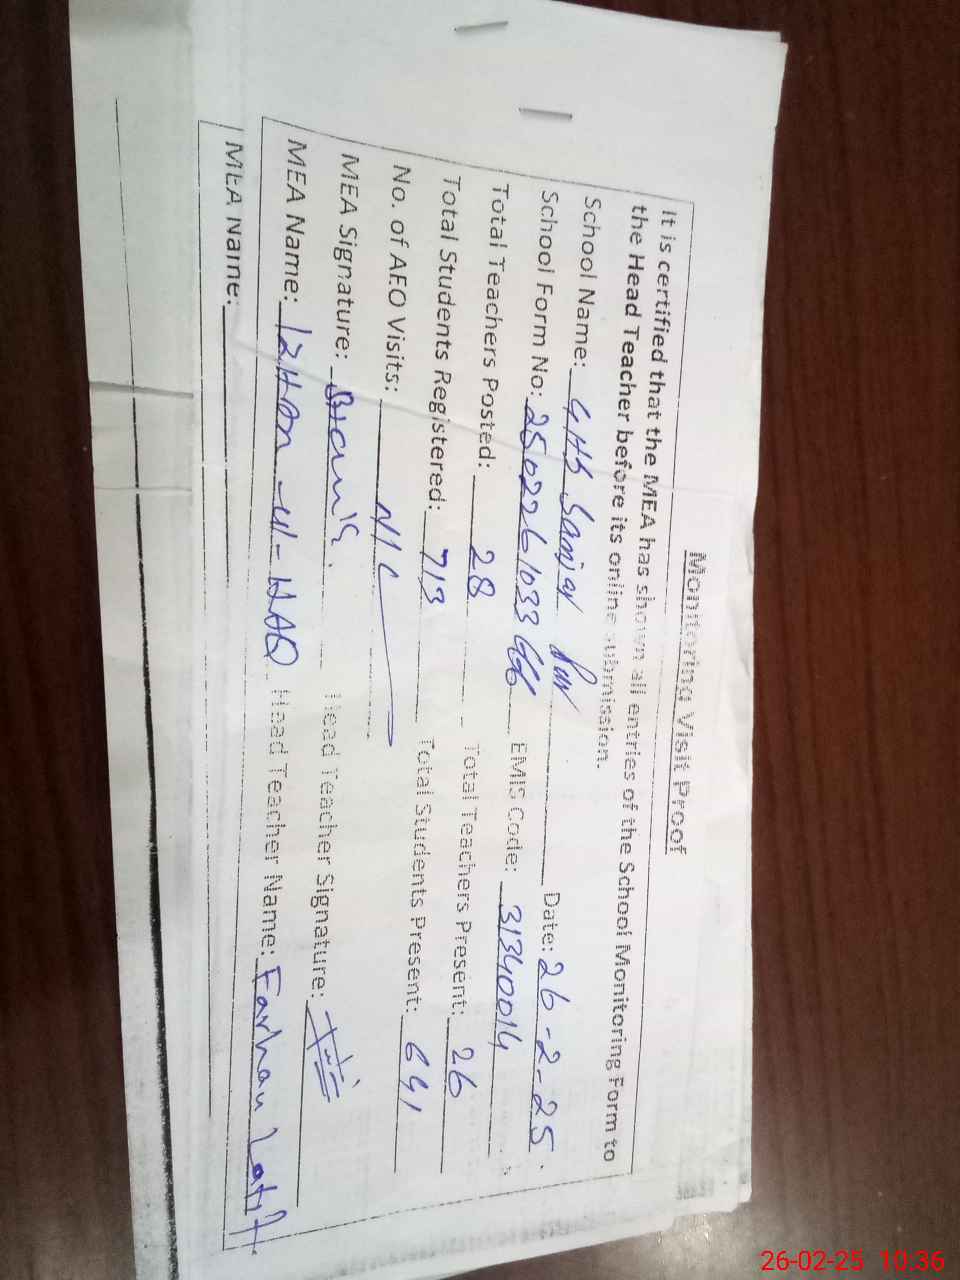 Monitoring Visit Proof
It is certified that the MEA has shown all entries of the School Monitoring Form to
the Head Teacher before its online submission.
School Name: GHS Sanjar Pur Date: 26-2-25
School Form No: 2502261033 EMIS Code: 31340014
Total Teachers Posted: 28 Total Teachers Present: 26
Total Students Registered: 713 Total Students Present: 641
No. of AEO Visits: NIL
MEA Signature: Head Teacher Signature:
MEA Name: IZHAR-UL-HAQ Head Teacher Name: Farhan Latif
MEA Name:
26-02-25 10:36